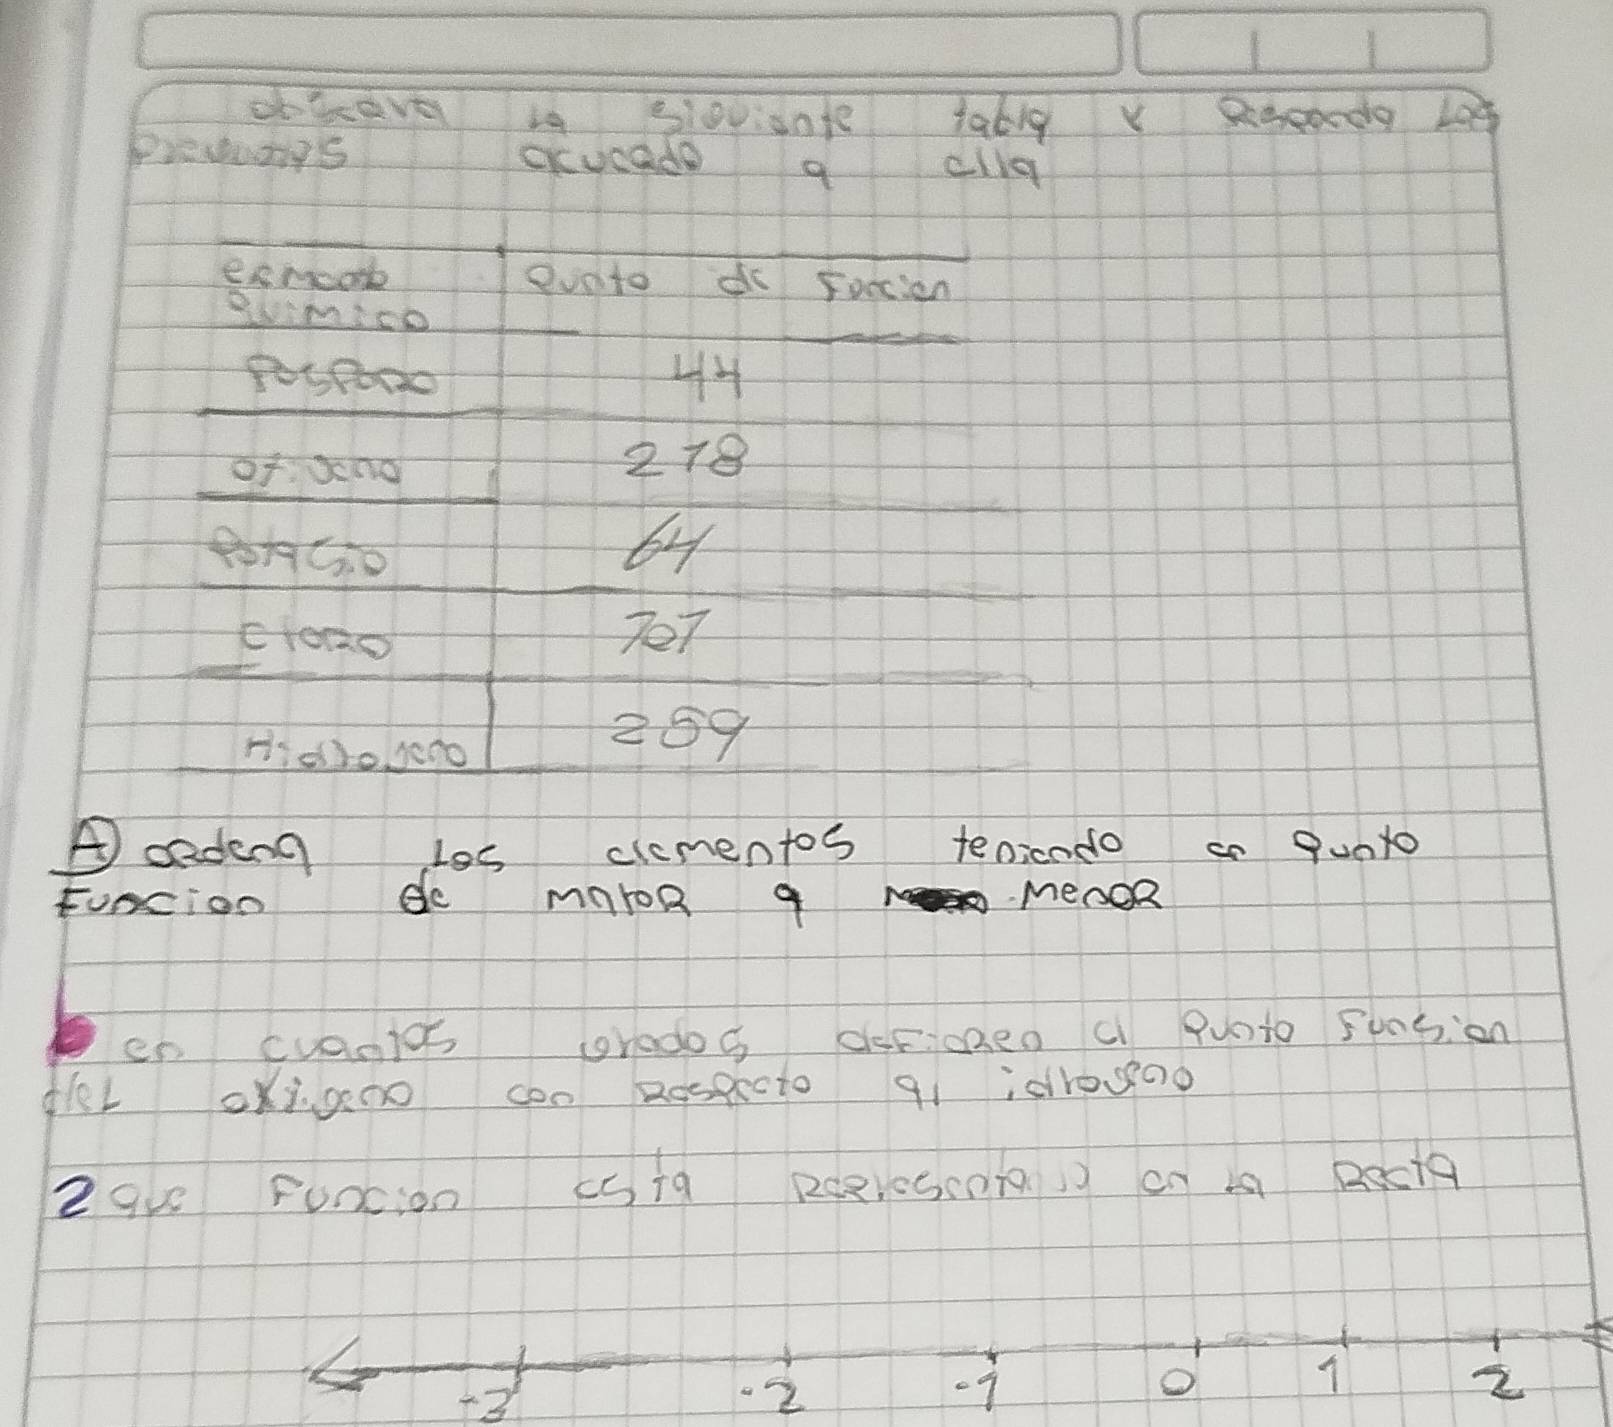 observa la siguiente tabla y Responda Las
preguntas acucado a ella
Químico Punto de Foncion
Fosforo 44
278
Potasio 64
Cloro 707
Hidrogeno 259
A ordena Los elementos teniendo en Punto
Funcion de maroR a MenoR
b en cuantos grados defieren el Punto Funsion
del oxigeno con Respecto al idrogeno
2 que Funcion esta en la Recta
-3 -2 -1 0 1 2